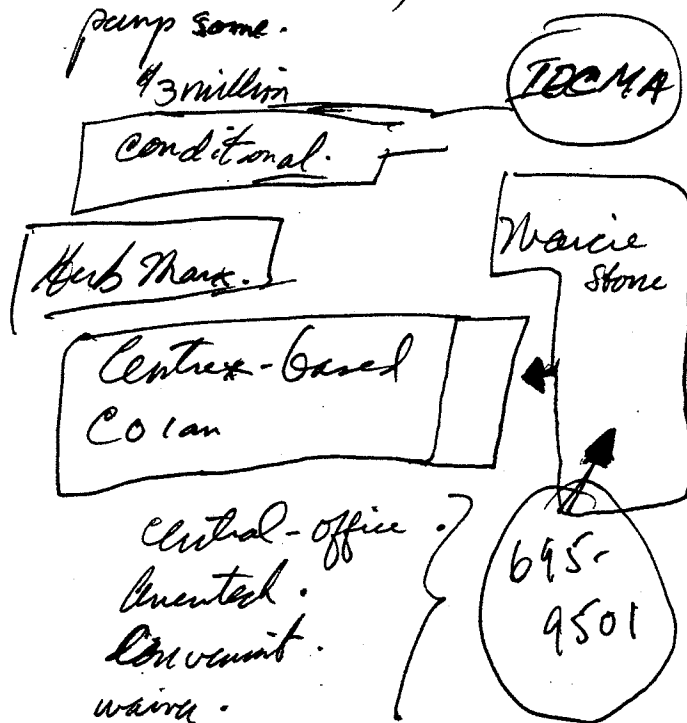 pump some.
$3 million
TOCMA
conditional.
Herb Marx.
Marcie
Stone
Centrex-based
CO lan
central-office.
Ameritech.
waiver.
695-
9501